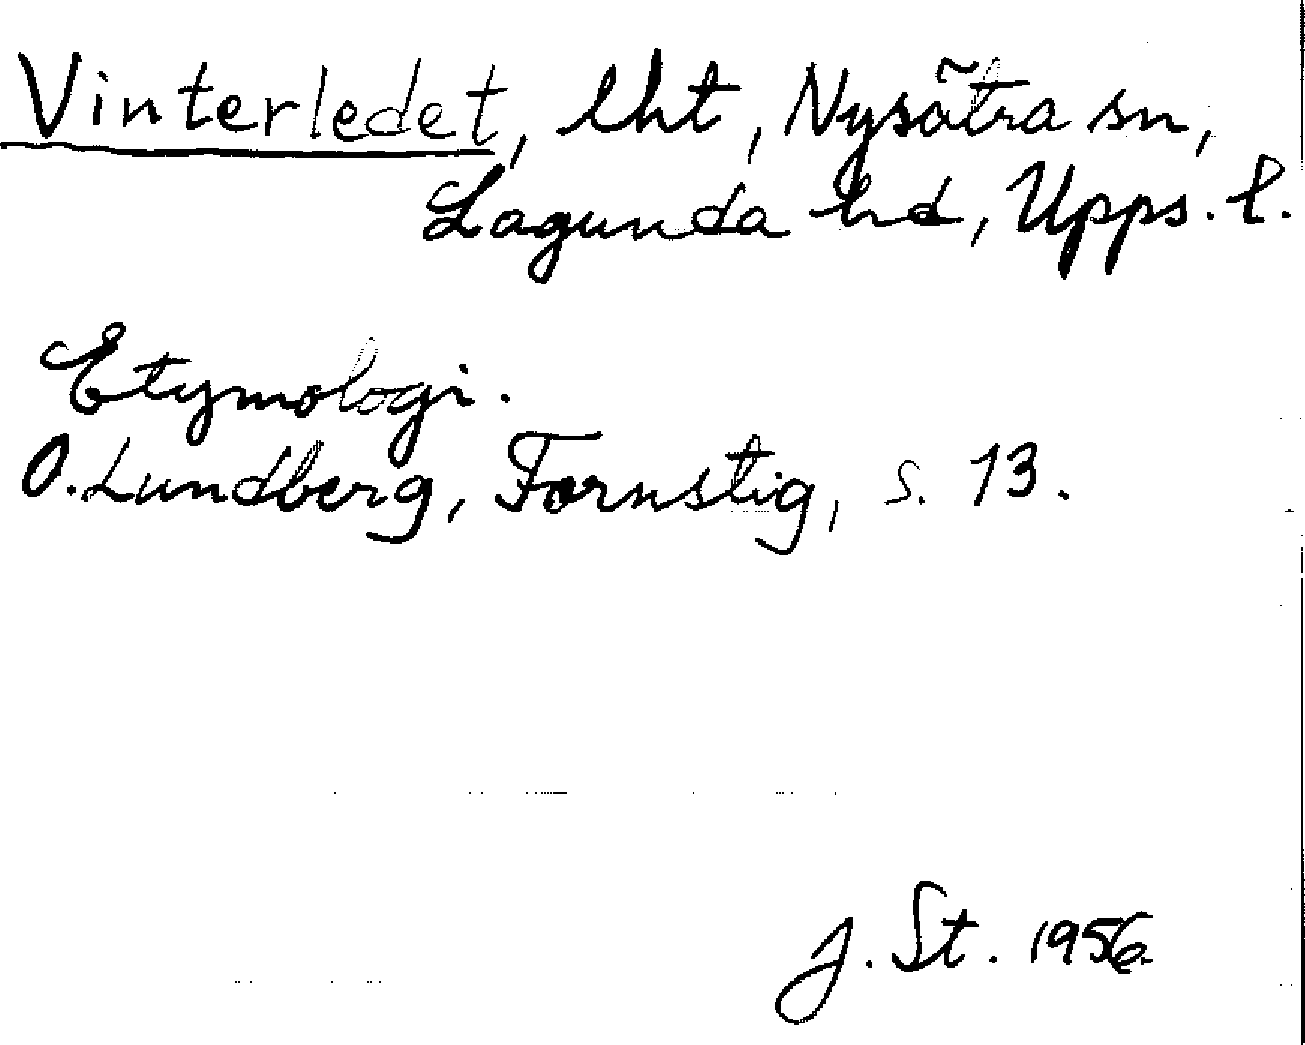 Vinterledet, lht, Nysätra sn,
Lagunda hd, Upps. l.
Etymologi.
O. Lundberg, Fornstig, s. 13.
J. St. 1956